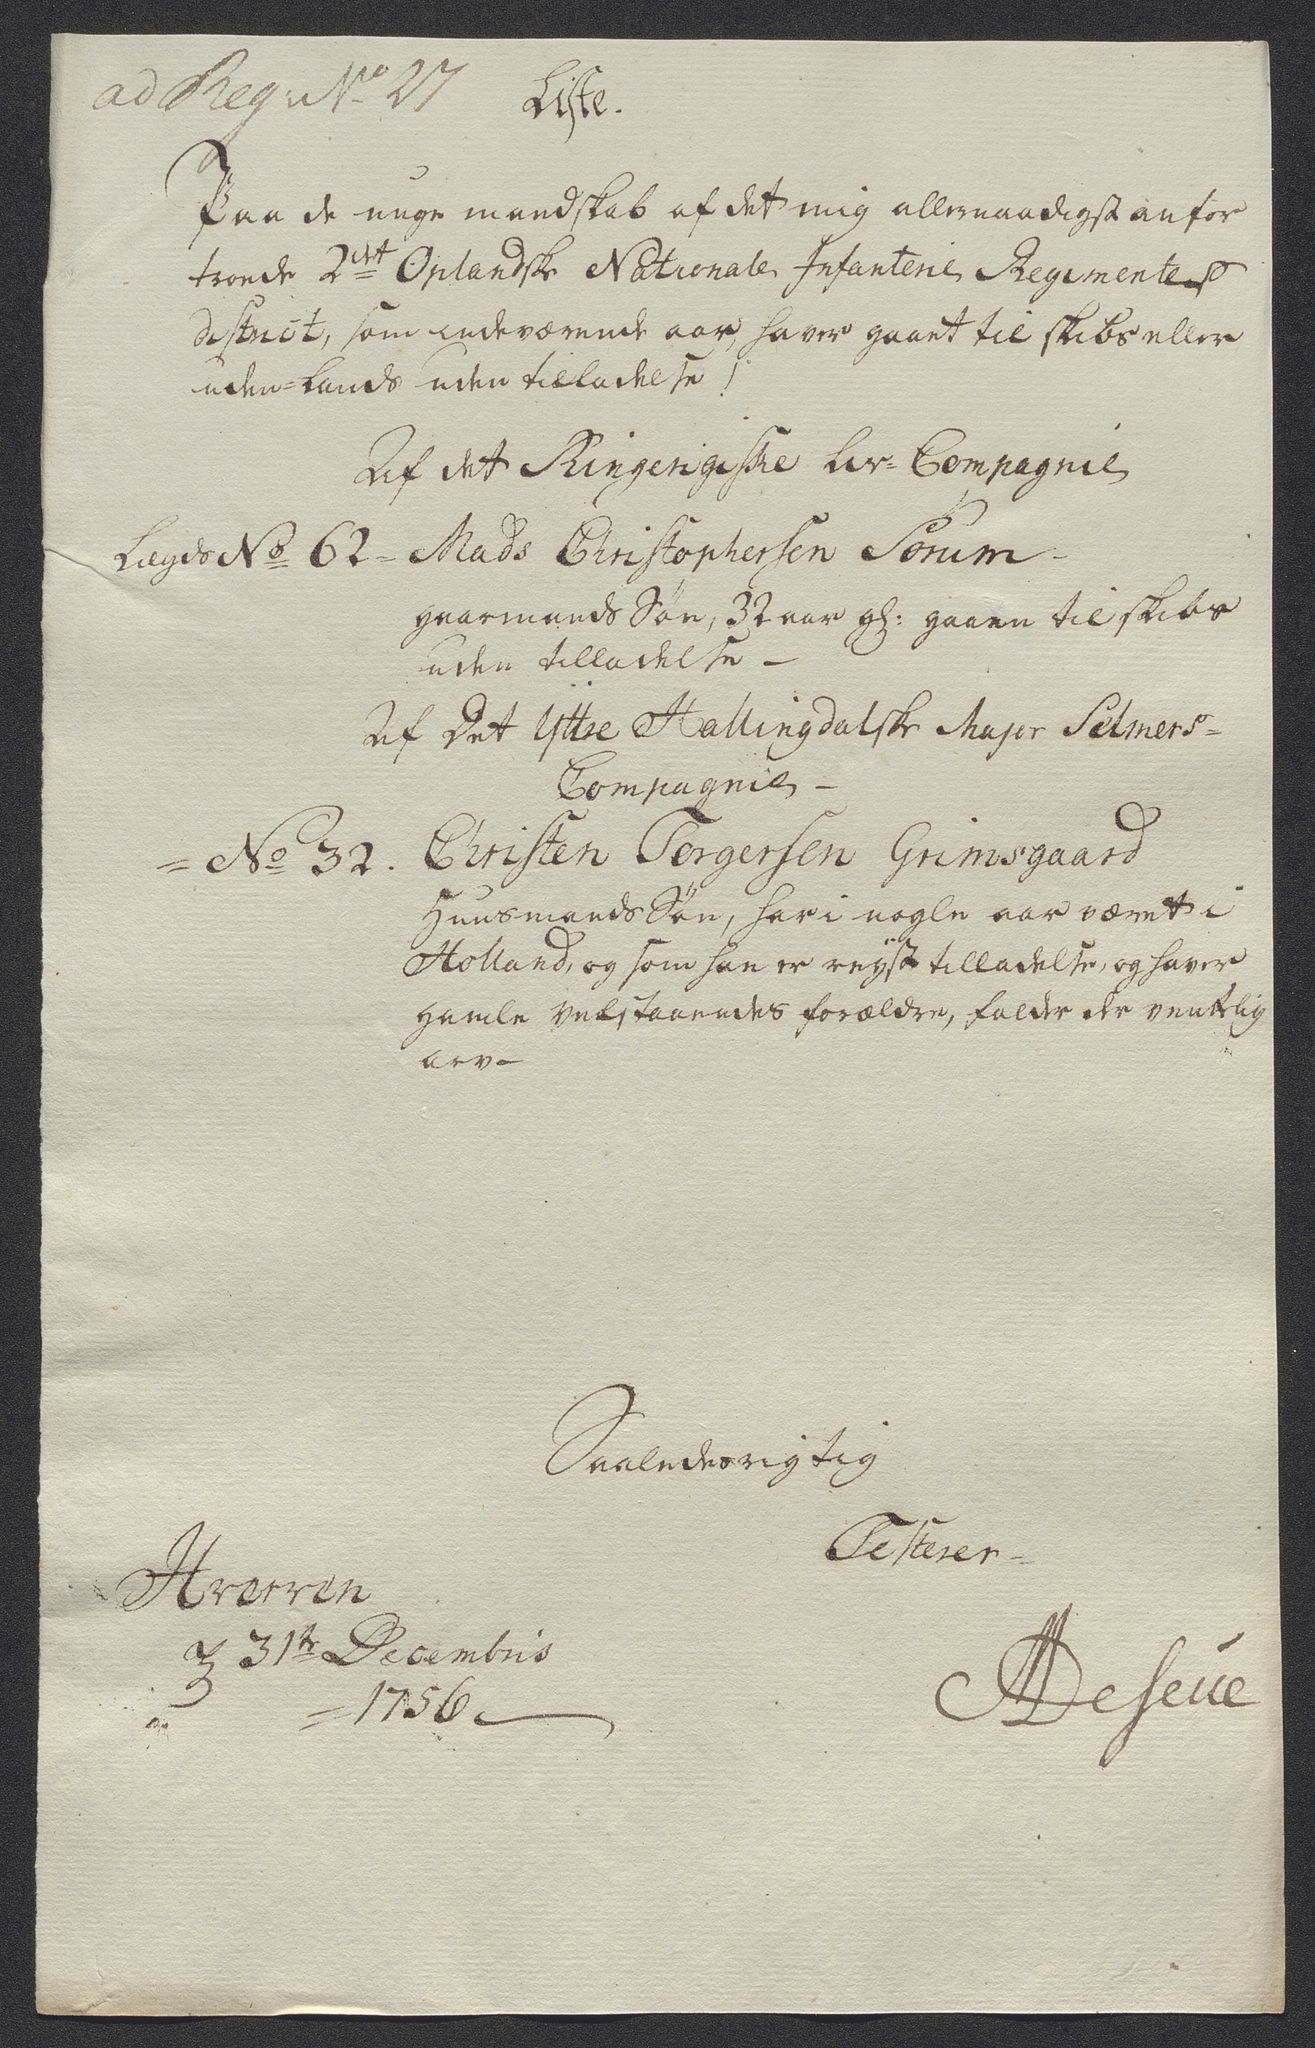 ad Reg: No 27
Liste.
Paa de unge mandskab af det mig allernaadigst anfor
troede 2det Oplandske Nationale Infanterie Regimentes
district, som indeværende aar, haver gaaet til skibs eller
uden=Lands uden tilladelse!
Af det Ringerigske Liv=Compagnie
Lægds No 62 = Mads Christophersen Sørum –
gaarmands Søn, 32 aar gl: gaaen til skibs
uden tilladelse –
Af Det Yttre Hallingdalske Major Selmers=
Compagnie –
= No 32. Christen Torgersen Grimsgaard
Huusmands Søn, har i nogle aar været i
Holland, og som han er reyst tilladelse, og haver
gamle velstaaendes forældre, falder der ventelig
arv –
Saaledes rigtig
Testerer –
31te Decembris
= 1756
De Seue